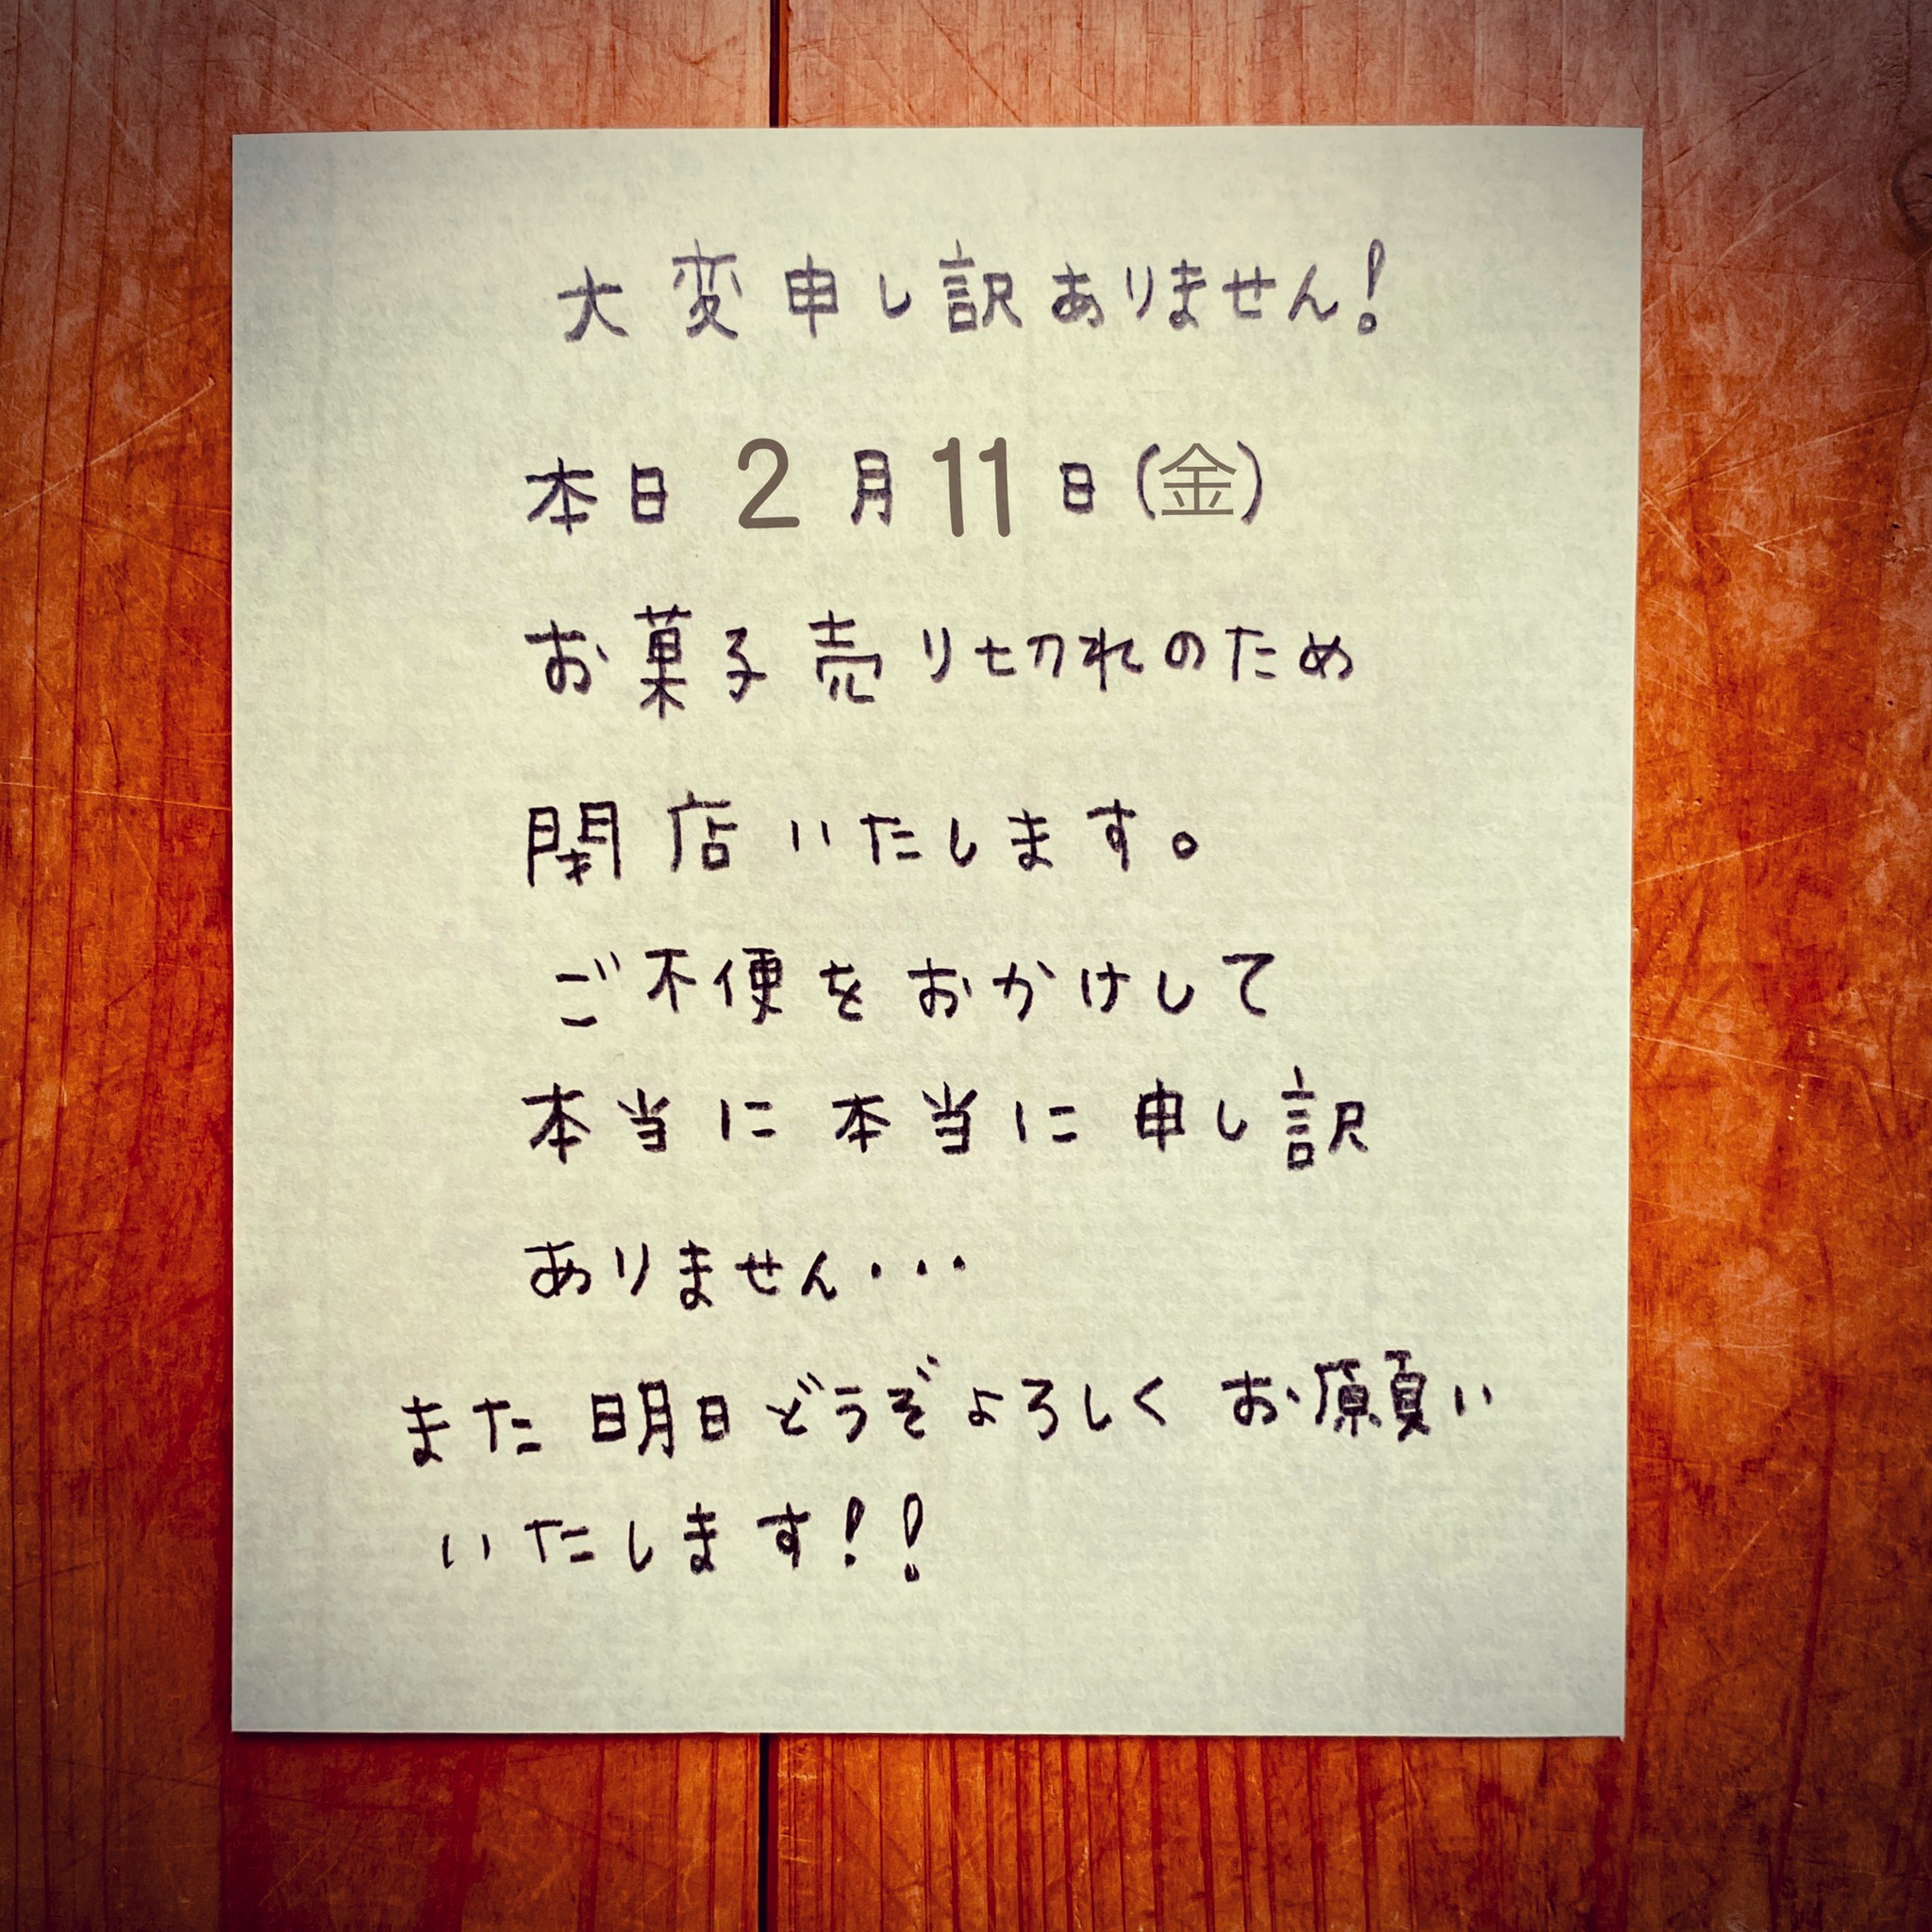 大変申し訳ありません!
本日 2月11日(金)
お菓子売り切れのため
閉店いたします。
ご不便をおかけして
本当に本当に申し訳
ありません・・・
また明日どうぞよろしくお願い
いたします!!